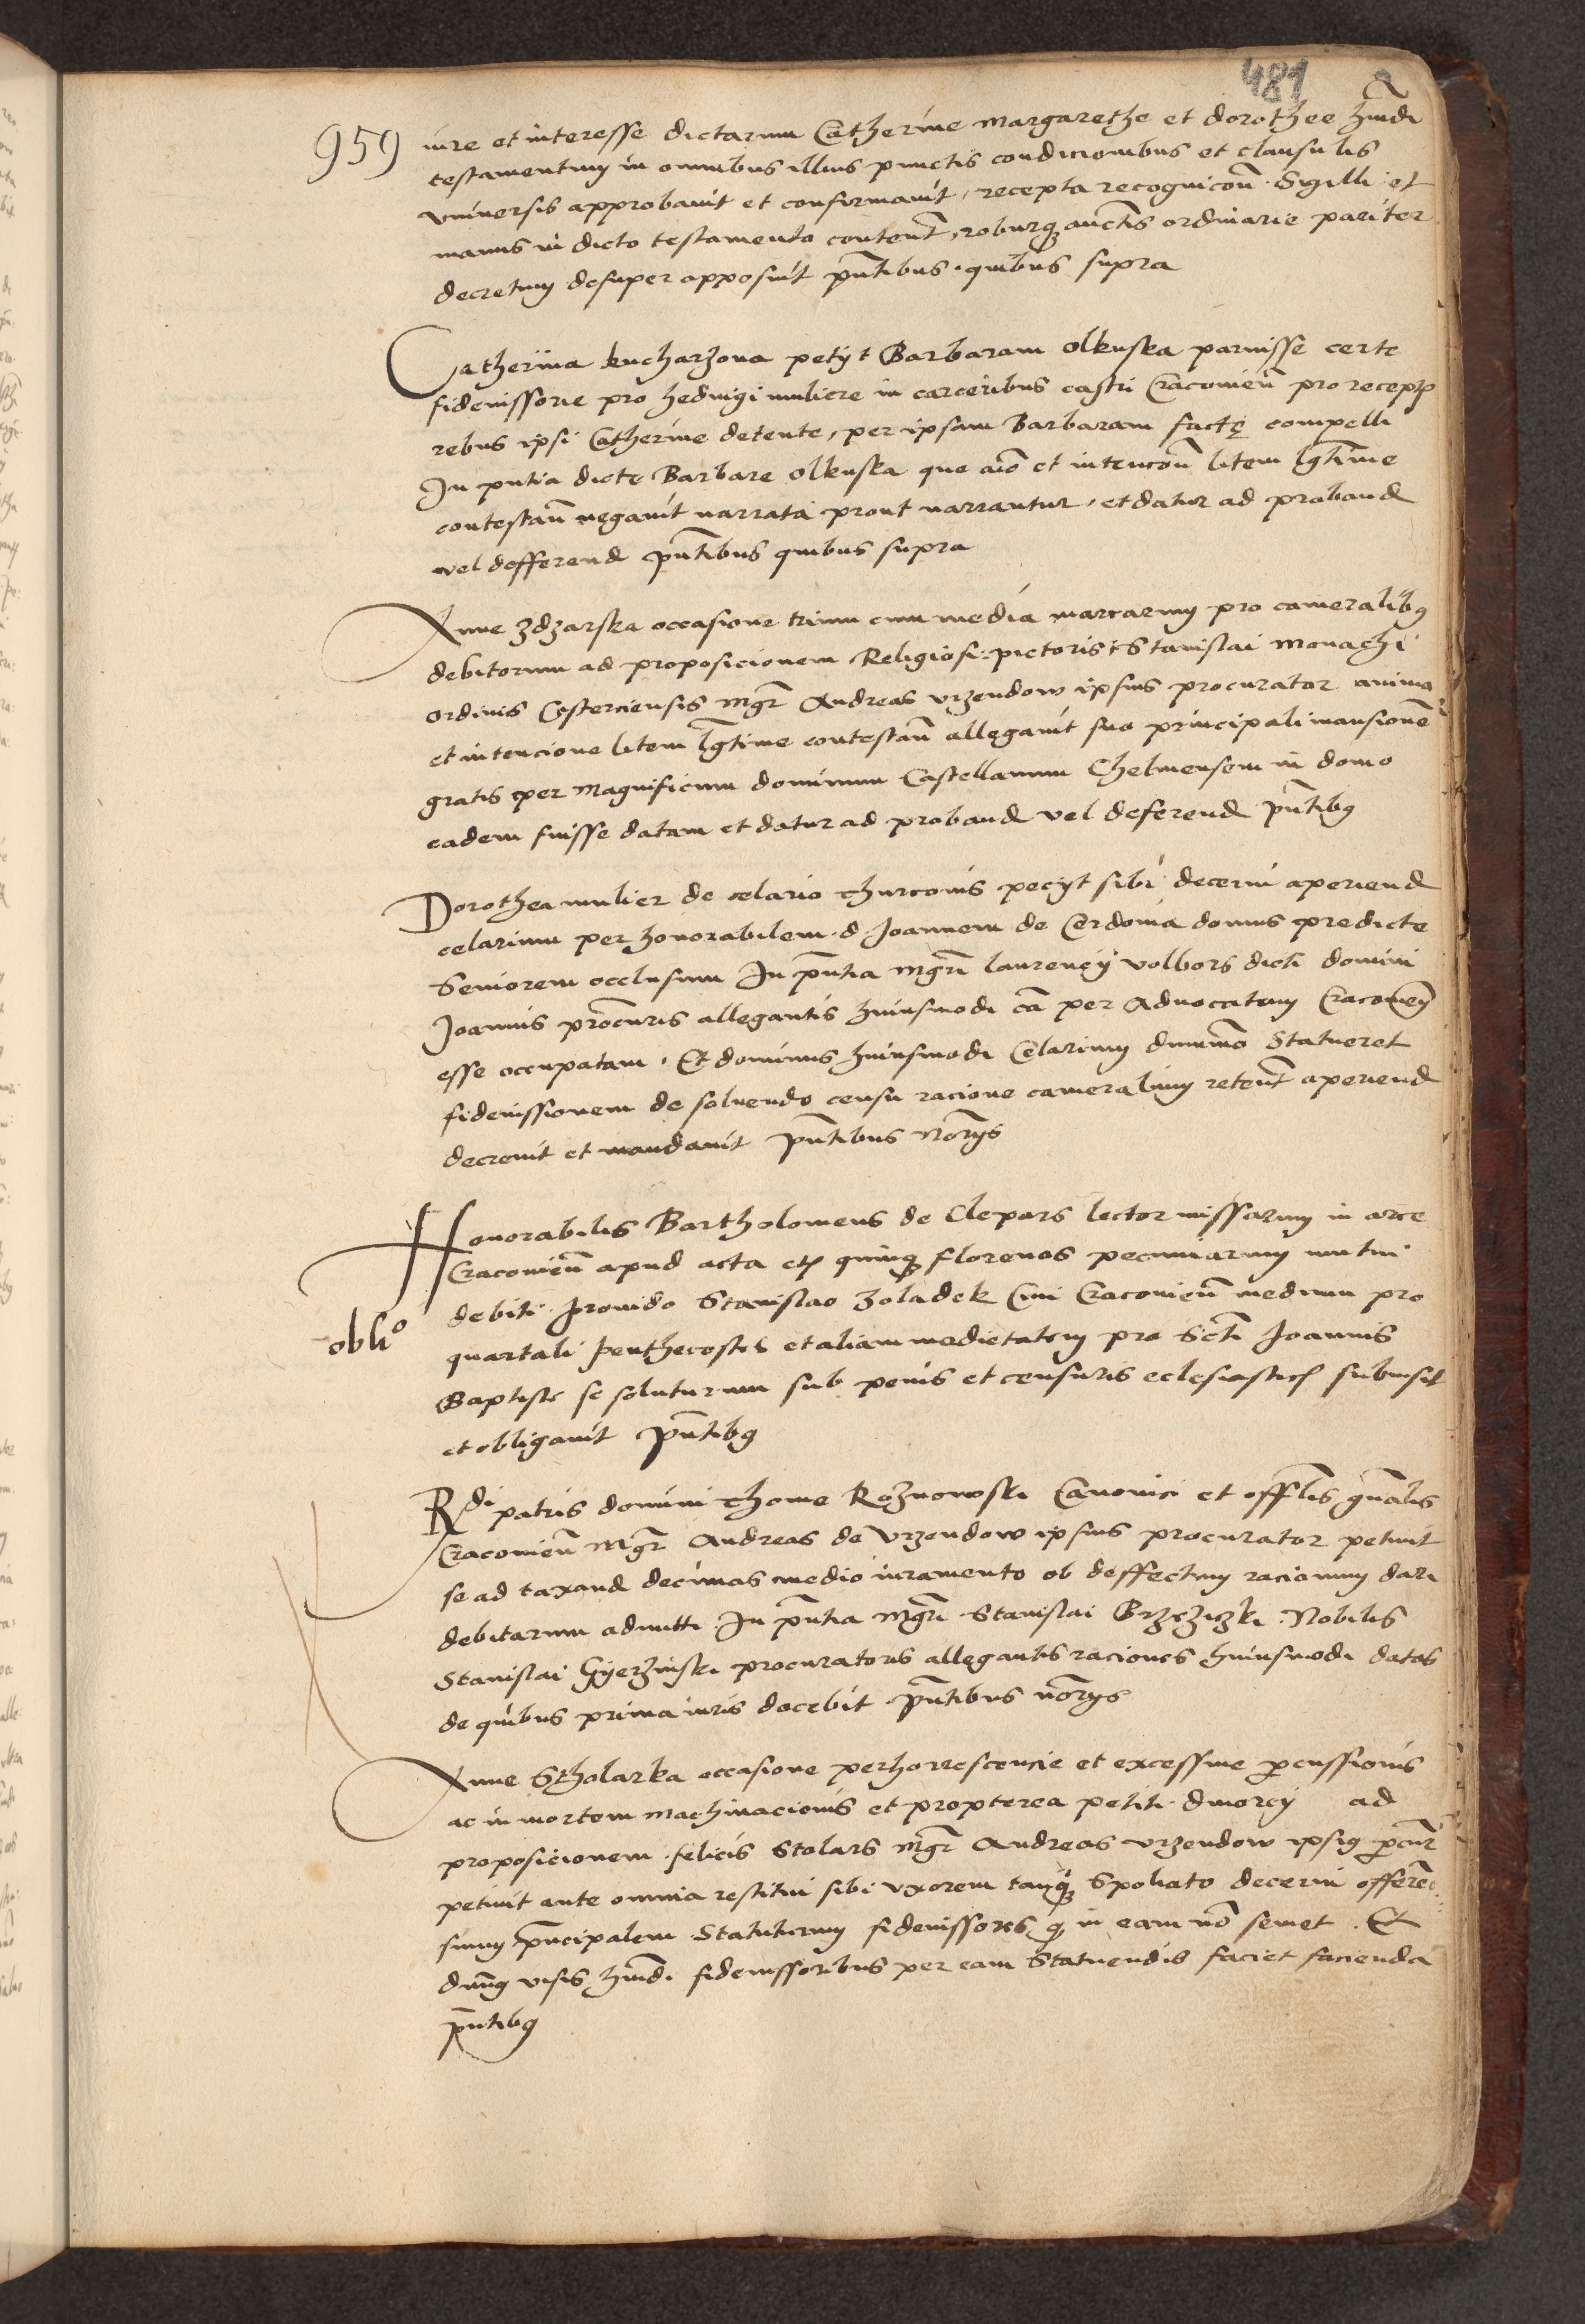 481 a
959 iure et interesse dictarum Catherine Margarethe et dorothee hmdi
testamentum in omnibus illius punctis condicionibus et clausulis
vniuersis approbauit et confirmauit, recepta recognicoē Sigilli et
manus in dicto testamento content, roburq auctis ordinarie pariter
decretum desuper apposuit pntibus quibus supra
Catherina kucharzowa petijt Barbaram olkuska paruisse certe
fideiussorie pro hedwigi muliere in carceribus castri Cracouien pro recept
rebus ipsi Catherine detente, per ipsam Barbaram factę compelli
In pntia dicte Barbare olkuska que aīo et intencoē litem lgtime
contestan negauit narrata prout narrantur, et datur ad proband
vel defferend pntibus quibus supra
Anne zdzarska occasione trium cum media marcarum pro cameralibq
debitorum ad proposicionem Religiosi pictoris Stanislai monachi
ordinis Cisterciensis mgr Andreas vrzendow ipsius procurator animo
et intencione litem lgtime contestan allegauit sua principali mansionē
gratis per magnificum dominum Castellanum Chelmensem in domo
eadem fuisse datam et datur ad proband vel deferend pntibq
Dorothea mulier de celario thurconis pecijt sibi decerni aperiend
celarium per honorabilem d Joannem de Cerdonia domus predicte
Seniorem occlusum In pntia mgri laurencij volbors dicti domini
Joannis procuris allegantis huiusmodi cā per Aduocatum Cracouien
esse occupatam. Et dominus huiusmodi Celarium dummo Statueret
fideiussionem de soluendo censu racione cameralium retent aperiend
decreuit et mandauit pntibus Norijs
Honorabilis Bartholomeus de Clepars lector missarum in arce
Cracouien apud acta etc quinq florenos pecuniarum mutui
debiti prouido Stanislao Zoladek Ciui Cracouien medium pro
obliᵒ quartali penthecostes et aliam medietatem pro Scti Joannis
Baptiste se soluturum sub penis et censuris eclesiasticis submisit
et obligauit pntibq
Rdi patris domini Thome Rożnowski Canonici et offlis gnalis
Cracouien Mgr Andreas de Vrzendow ipsius procurator petiuit
se ad taxand decimas medio iuramento ob deffectum racionum dari
debitarum admitti In pntia mgri Stanislai Brzęziczki Nobilis
Stanislai Gyerzinski procuratoris allegantis raciones huiusmodi datas
de quibus prima iuris docebit pntibus norijs
Anne Stholarka occasione perhorrescencie et excessiue pcussionis
ac in mortem machinacionis et propterea petiti diuorcij ad
proposicionem felicis Stolars mgr Andreas vrzendow ipsiq pcur
petiuit ante omnia restitui sibi vxorem tanq Spoliato decerni offeren
suum pncipalem Statuturum fideiussores q in eam nō seuiet. Et
dnūq visis hmdi fideiussoribus per eam Statuendis faciet facienda
pntibq